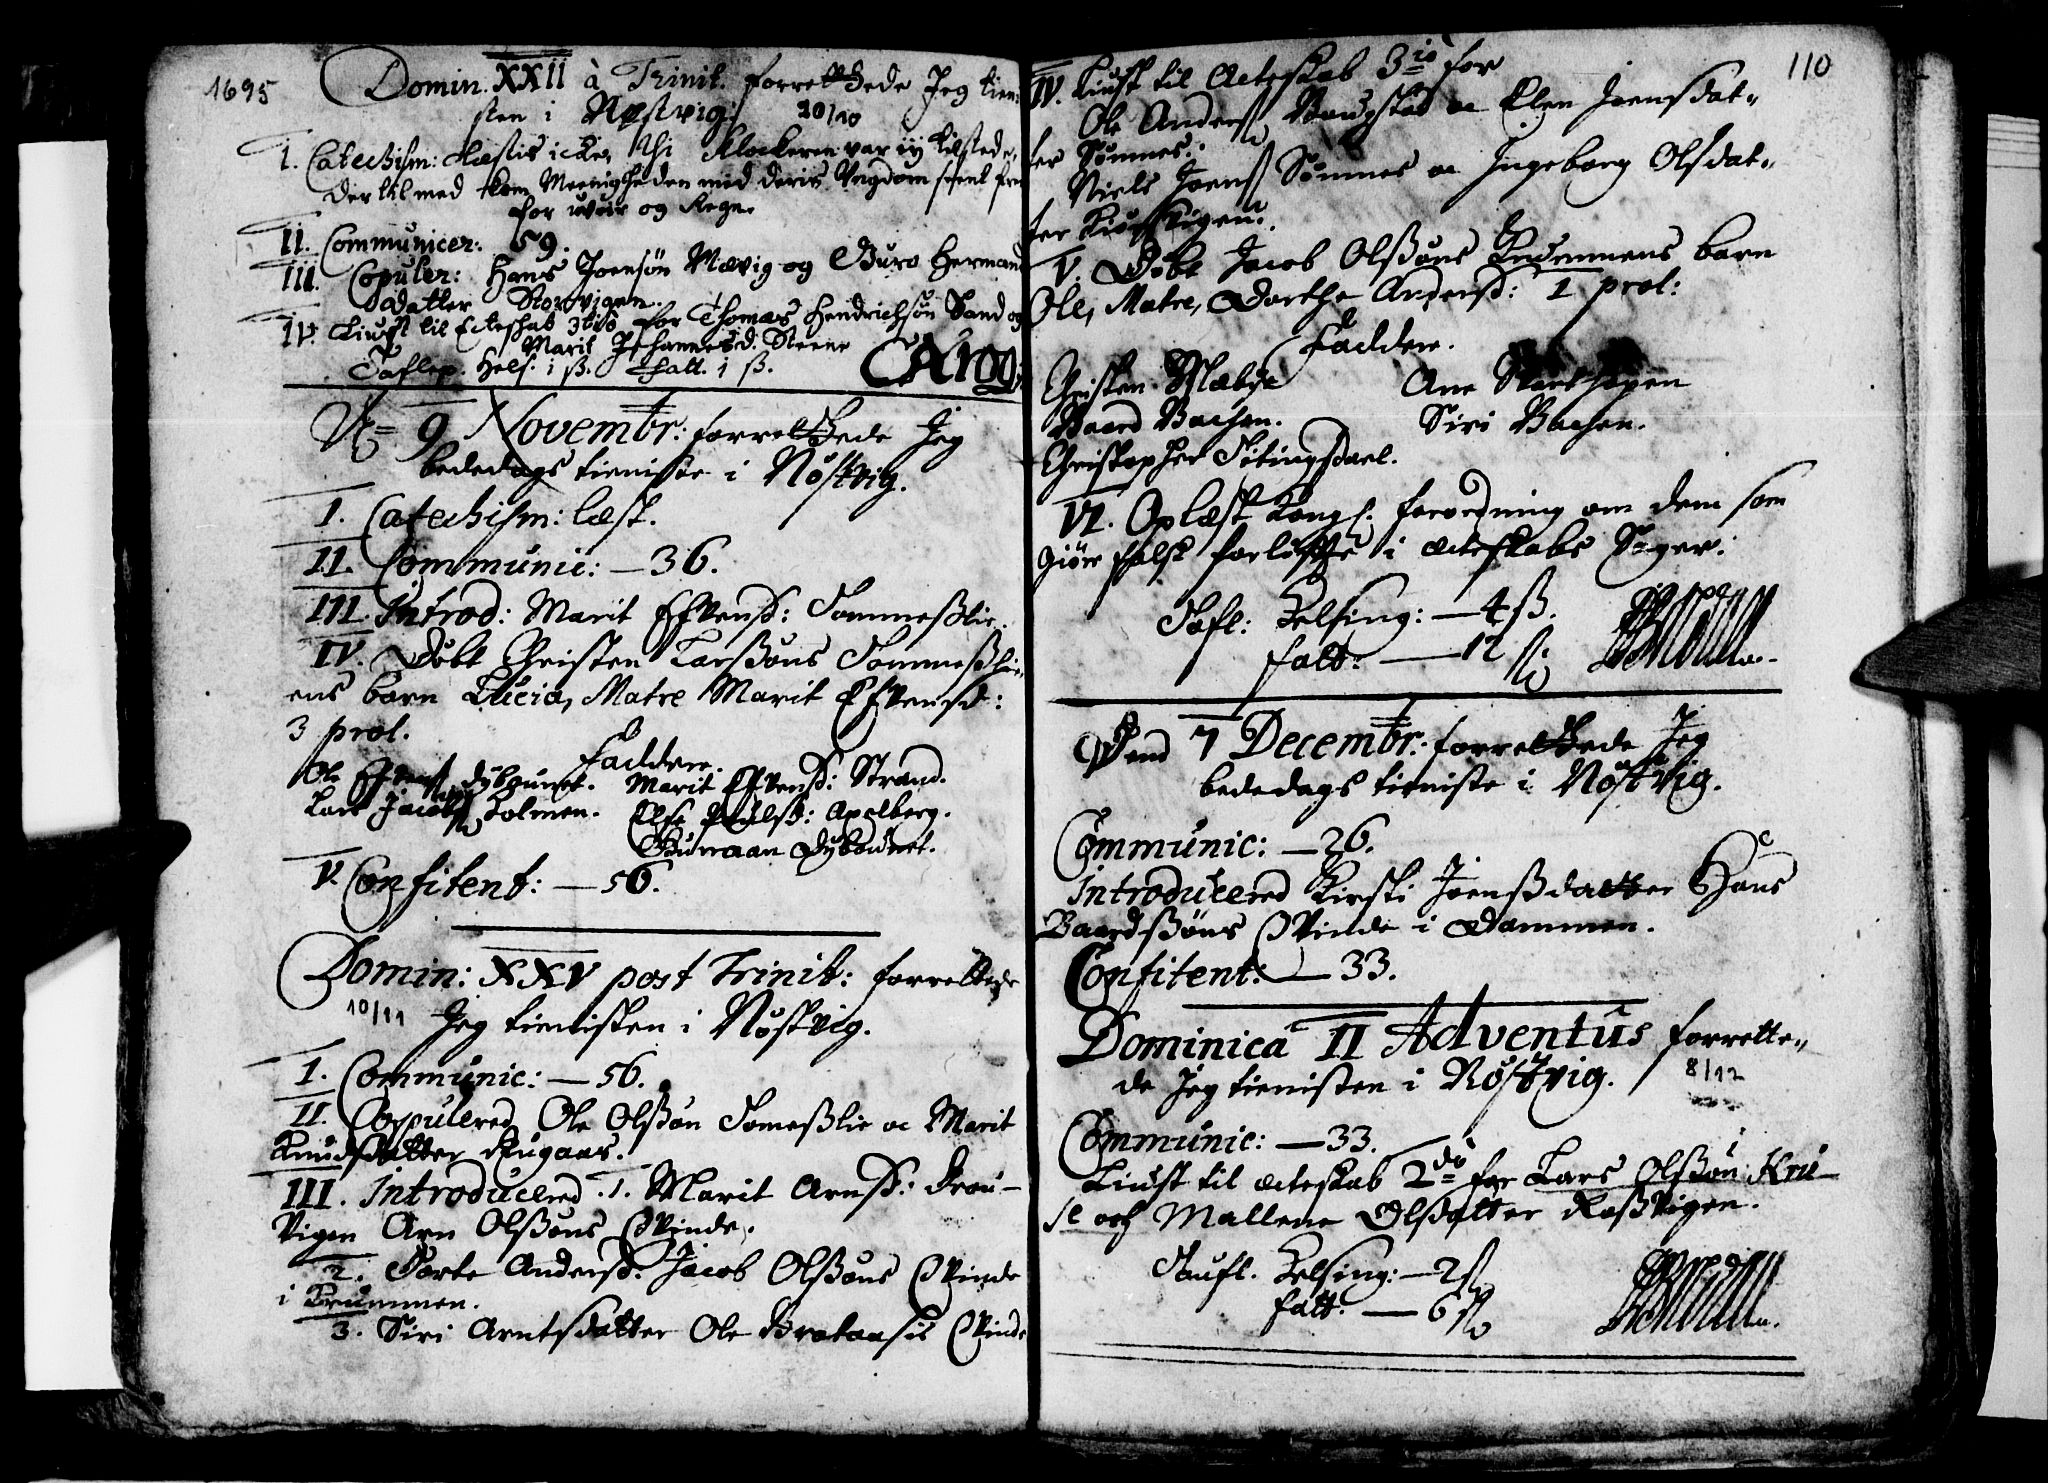 1695
Domin. XXII à Trinit. forrettede Jeg tien-
sten i Nøstvig. 20/10
1. Catechism: Læstis icke, thi Klockeren var ey tilstede,
Der til med kom Meenigheden med deris Ungdom seent frem
for uveir og Regn.
II. Communicer: 59.
III. Copuler: Hans Joensøn Mævig og Guro Hermands
datter Storvigen.
IV. Liust til Ecteskab 3tio for Thomas Hendrichsøn Sand og
Marit Johannesd. Steene
Taflep. Hels. 1 ß. Fatt. 1 ß.
D. 9 Novembr: forrettede Jeg
bededags tieniste i Nøstvig.
I. Catechism: læst.
II. Communic: — 36.
III. Introd: Marit Efvensd: Sommeßlie.
IV. Døbt Christen Larssøns Sommeßlie-
ens barn Lucia, Matre Marit Efvensd:
3 prol.
Faddere.
Ole Efvens. Dybaunet. Marit Efvensd: Strand.
Lars Jacobs. Holmen. Else Poulsd: Apelberg.
Guru aan Dybaunet.
V. Confitent: — 56.
Domin: XXV post Trinit: forrettede
10/11 Jeg tienisten i Nøstvig.
I. Communic: — 56.
II. Copulered Ole Olssøn Someßlie oc Marit
Knudsdatter Augaas.
III. Introducered. 1. Marit Arnsd: Drou-
vigen Arn Olssøns Qvinde.
2. Dorte Andersd. Jacob Olssøns Qvinde
i Brummen.
3. Siri Arntsdatter Ole Brataasis Qvinde
110
IV. Liust til Ecteskab 3io for
Ole Anders. Baugstad oc Elen Joensdat-
ter Sømnes.
Niels Joens. Sømnes oc Ingeborg Olsdat-
ter
V. Døbt Jacob Olssøns barn
Ole, Matre, Dorthe Andersd: 1 prol:
Faddere.
Christen Mæbye Ane
Baard Bachen. Siri Bachen.
Christopher Fitingsdael.
VI. Oplæst Kongl. forordning om dem som
giør falsk forløfte i Ecteskabs Sager.
Tafl: Helsing: — 4 ß.
Fatt: — 12 ß
Dend 7 Decembr: forrettede Jeg
bededags tieniste i Nøstvig.
Communic: — 26.
Introducered Kirsti Joensdatter Hans
Baardssøns Qvinde i Dammen.
Confitent: — 33.
Dominica II Adventus forrette-
de Jeg tienisten i Nøstvig. 8/12
Communic: — 33.
Liust til Ecteskab 2do for Lars Olssøn Kru-
se och Mallene Olsdatter Roßvigen.
Taufl. Helsing: — 2 ß
Fatt: — 6 ß